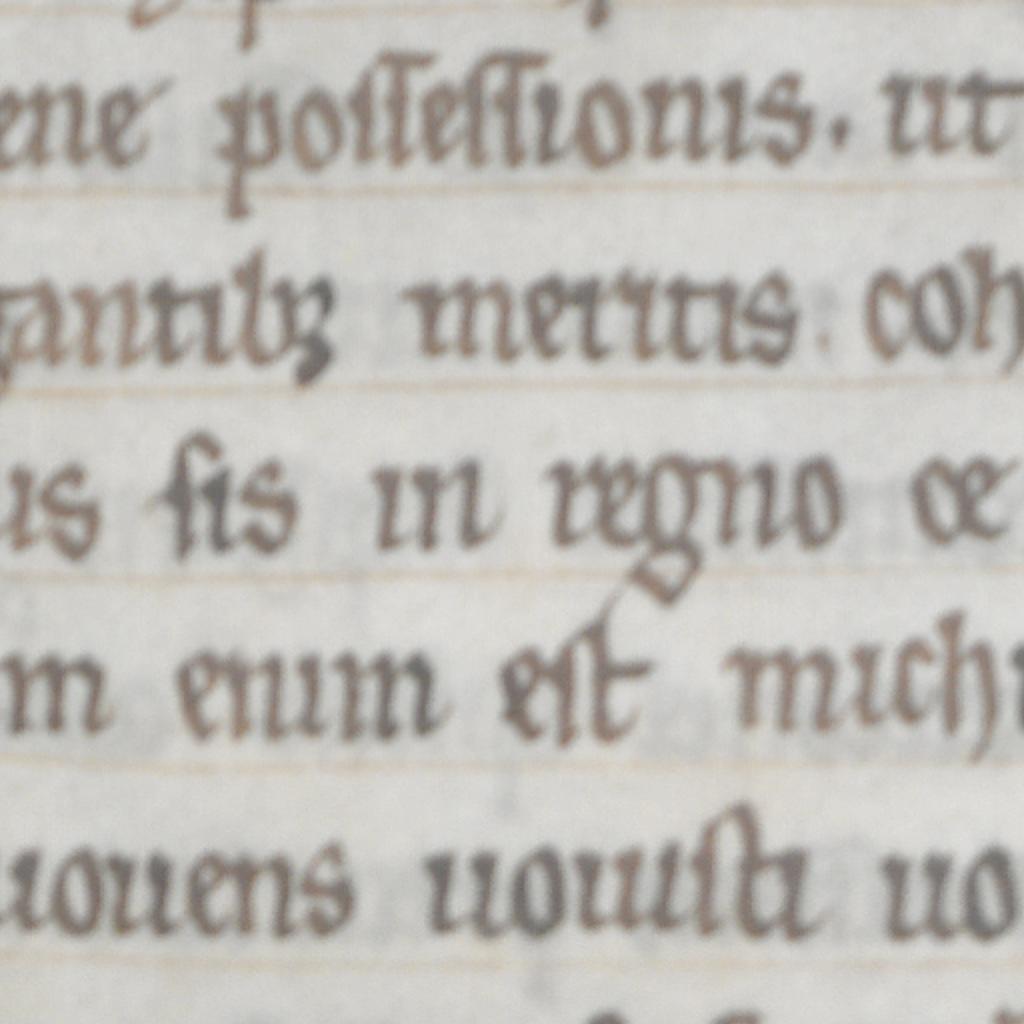 ene possessionis. ut
gantibꝫ meritis. coh
us sis in regno ce
m enim est michi
uouens uouisti uo